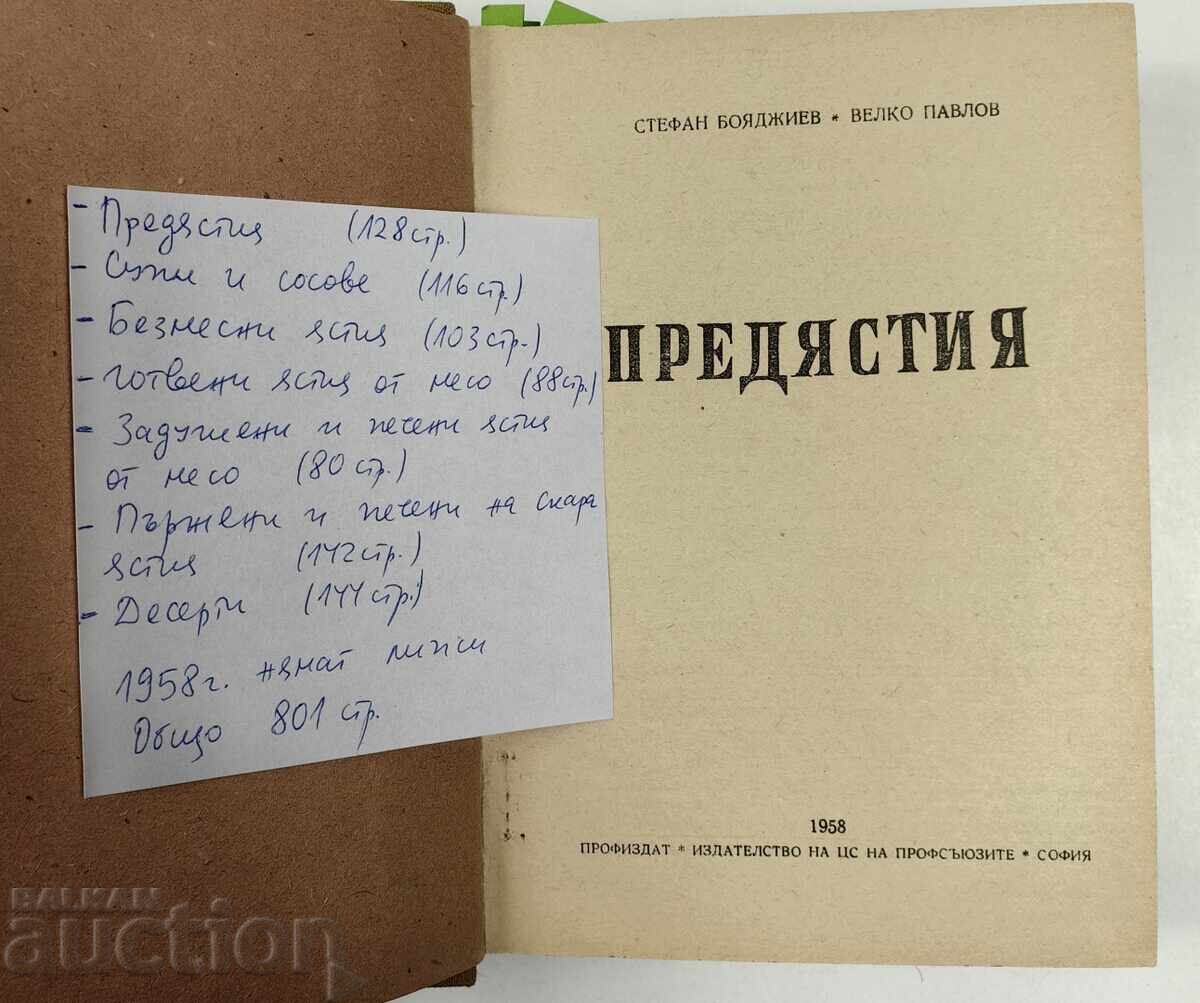 - Предястия (128 стр.)
- Супи и сосове (116 стр.)
- Безмесни ястия (103 стр.)
- Готвени ястия от месо (88 стр.)
- Задушени и печени ястия
от месо (80 стр.)
- Пържени и печени на скара
ястия (142 стр.)
- Десерти (144 стр.)
1958 г. нямат липси
Общо 801 стр.
СТЕФАН БОЯДЖИЕВ * ВЕЛКО ПАВЛОВ
ПРЕДЯСТИЯ
1958
ПРОФИЗДАТ * ИЗДАТЕЛСТВО НА ЦС НА ПРОФСЪЮЗИТЕ * СОФИЯ
BALKAN
auction